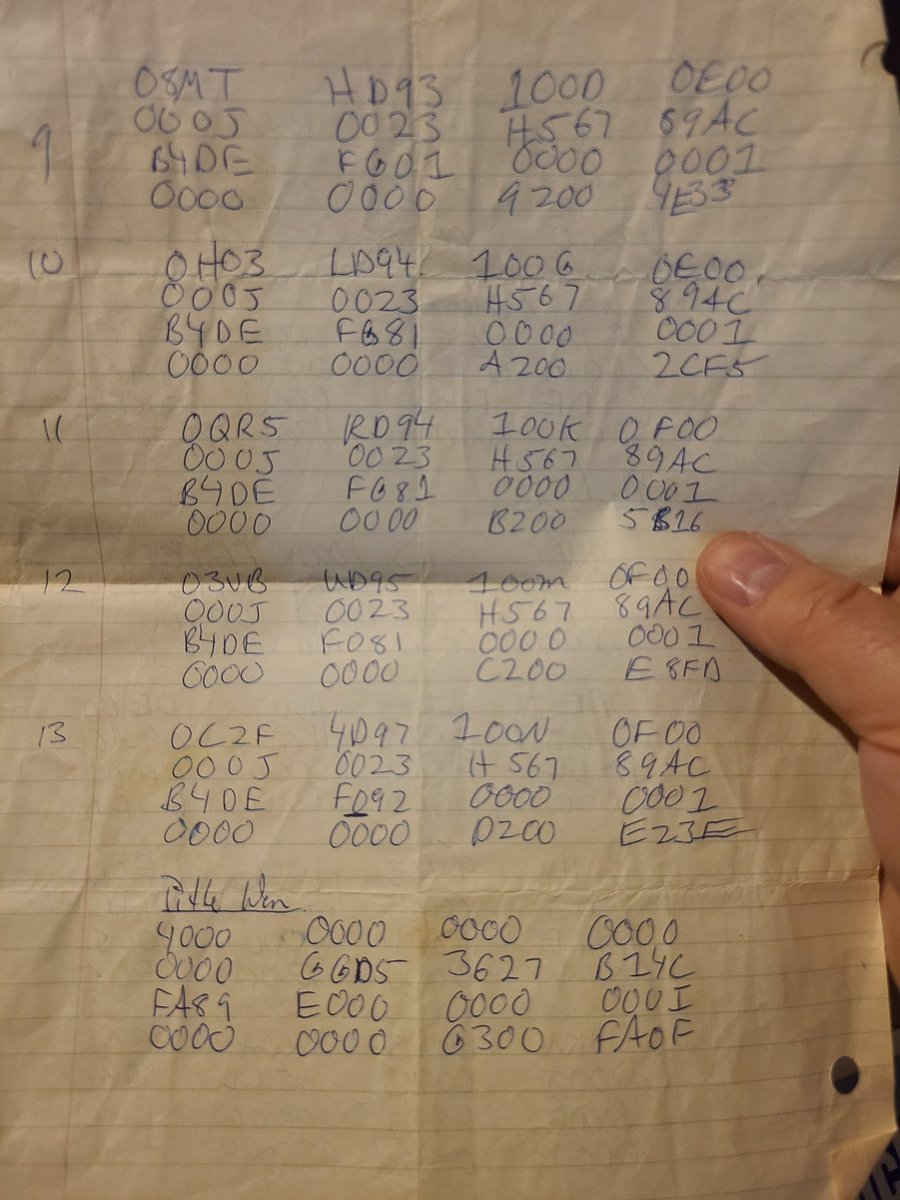 08MT HD93 100D 0E00
9 000J 0023 H567 89AC
B4DE FG01 0000 0001
0000 0000 9200 4E33
10 0H03 LD94 100G 0E00
000J 0023 H567 89AC
B4DE FG81 0000 0001
0000 0000 A200 2CF5
11 0QR5 RD94 100K 0F00
000J 0023 H567 89AC
B4DE FG81 0000 0001
0000 0000 B200 5B16
12 03VB WD95 100M 0F00
000J 0023 H567 89AC
B4DE F081 0000 0001
0000 0000 C200 E8FD
13 0C2F 4D97 100N 0F00
000J 0023 H567 89AC
B4DE F092 0000 0001
0000 0000 D200 E23E
Title Win
4000 0000 0000 0000
0000 GGD5 3627 B14C
FA89 E000 0000 000I
0000 0000 G300 FA0F